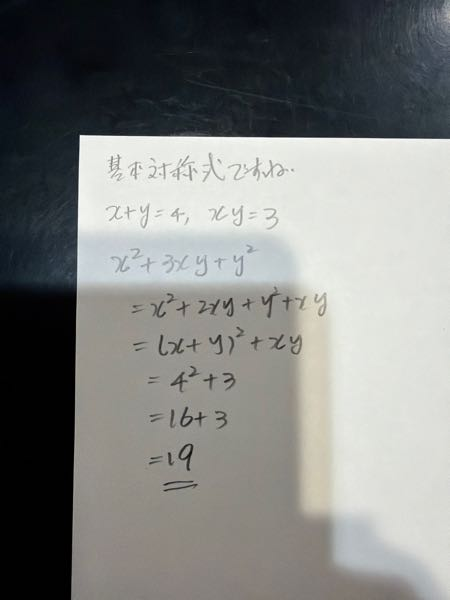 基本対称式ですね..
x+y=4, xy=3
x²+3xy+y²
=x²+2xy+y²+xy
=(x+y)²+xy
=4²+3
=16+3
=19